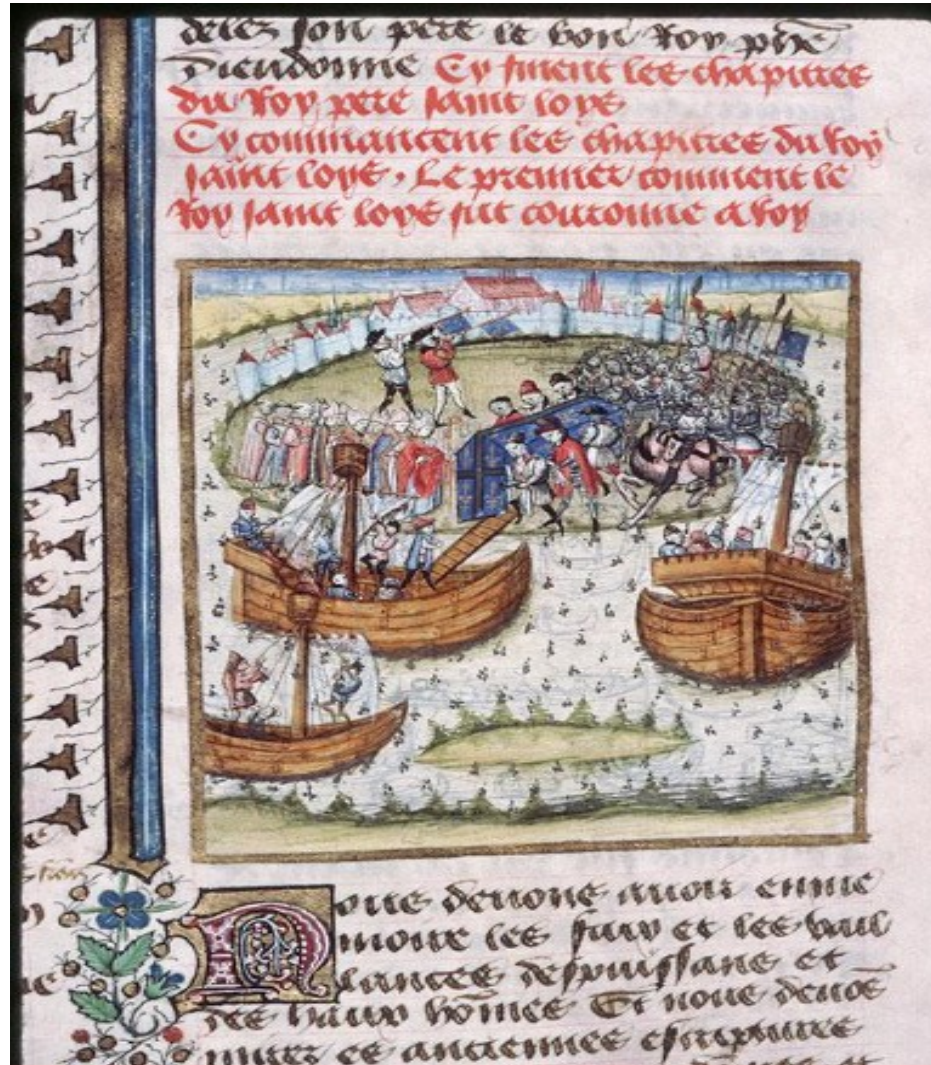 delez son pere le bon Roy phē
Dieudonne Cy finent les chapitres
du Roy pere saint loys
Cy commancent les chapitres du Roy
saint loys . Le premier comment le
Roy saint loys fut couronne a Roy
Nous devons avoir en me
moire les fais et les vail
lances des puissans et
des haux hōmes Et nous devōs
es anciennes escriptures